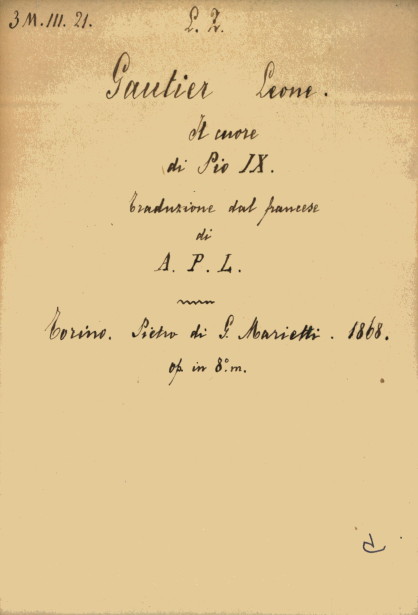 3 M. III. 21.
L. I.
Gautier Leone.
Il cuore
di Pio IX.
Traduzione dal francese
di
A. P. L.
Torino. Pietro di G. Marietti. 1868.
op. in 8.º m.